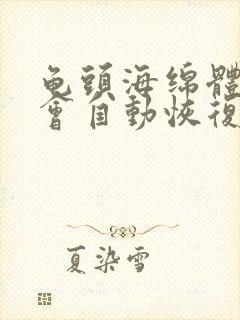 龟頭海绵體
會自動恢復
夏染雪